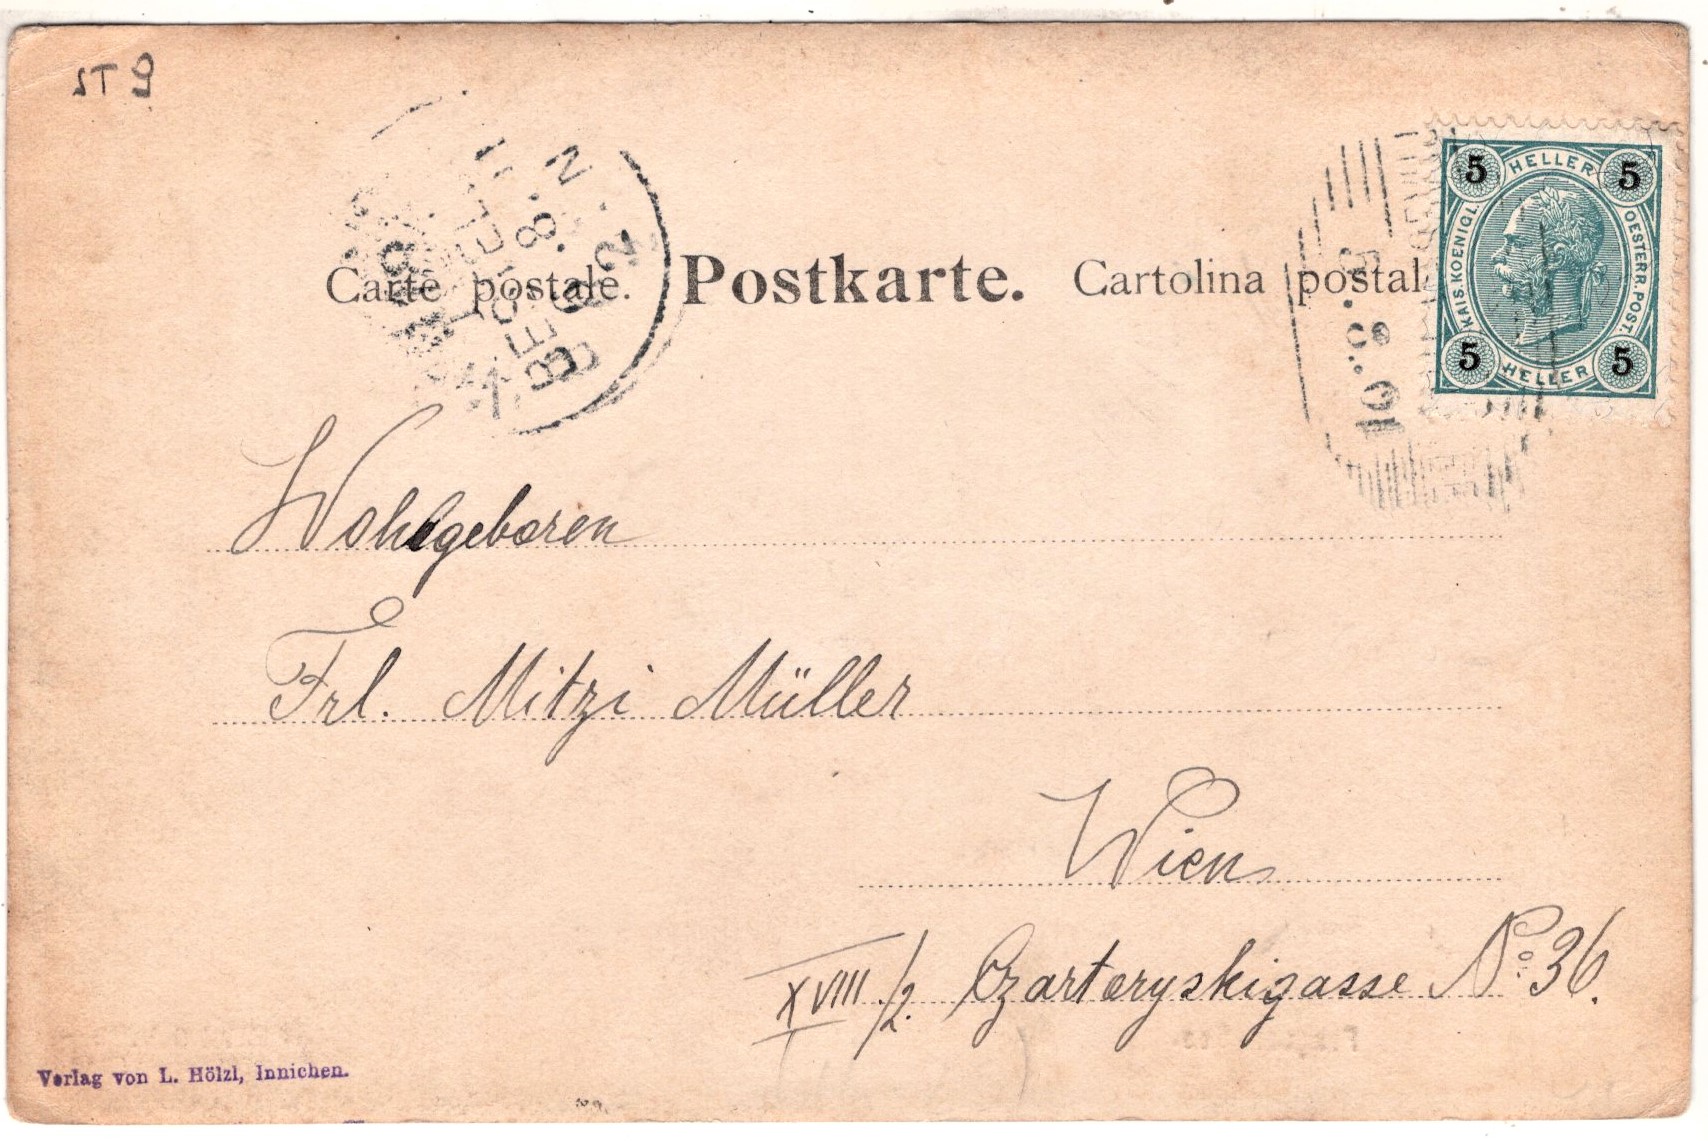 Carte postale. Postkarte. Cartolina postal
5 HELLER 5
KAIS. KOENIGL. OESTERR. POST.
5 HELLER 5
BESTELLT
Wohlgeboren
Frl. Mitzi Müller
Wien
XVIII./2. Czartoryskigasse No. 36.
Verlag von L. Hölzl, Innichen.